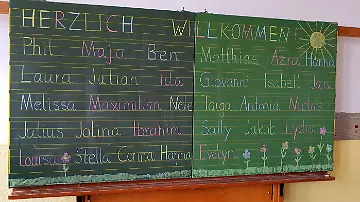 HERZLICH WILLKOMMEN!
Phil Maja Ben Matthias Azra Hanna
Laura Julian Ida Giovanni Isabell Jan
Melissa Maximilian Nele Taiga Antonia Niclas
Julius Jolina Ibrahim Sally Jakob Lydia
Louisa Stella Carina Hanna Evelyn